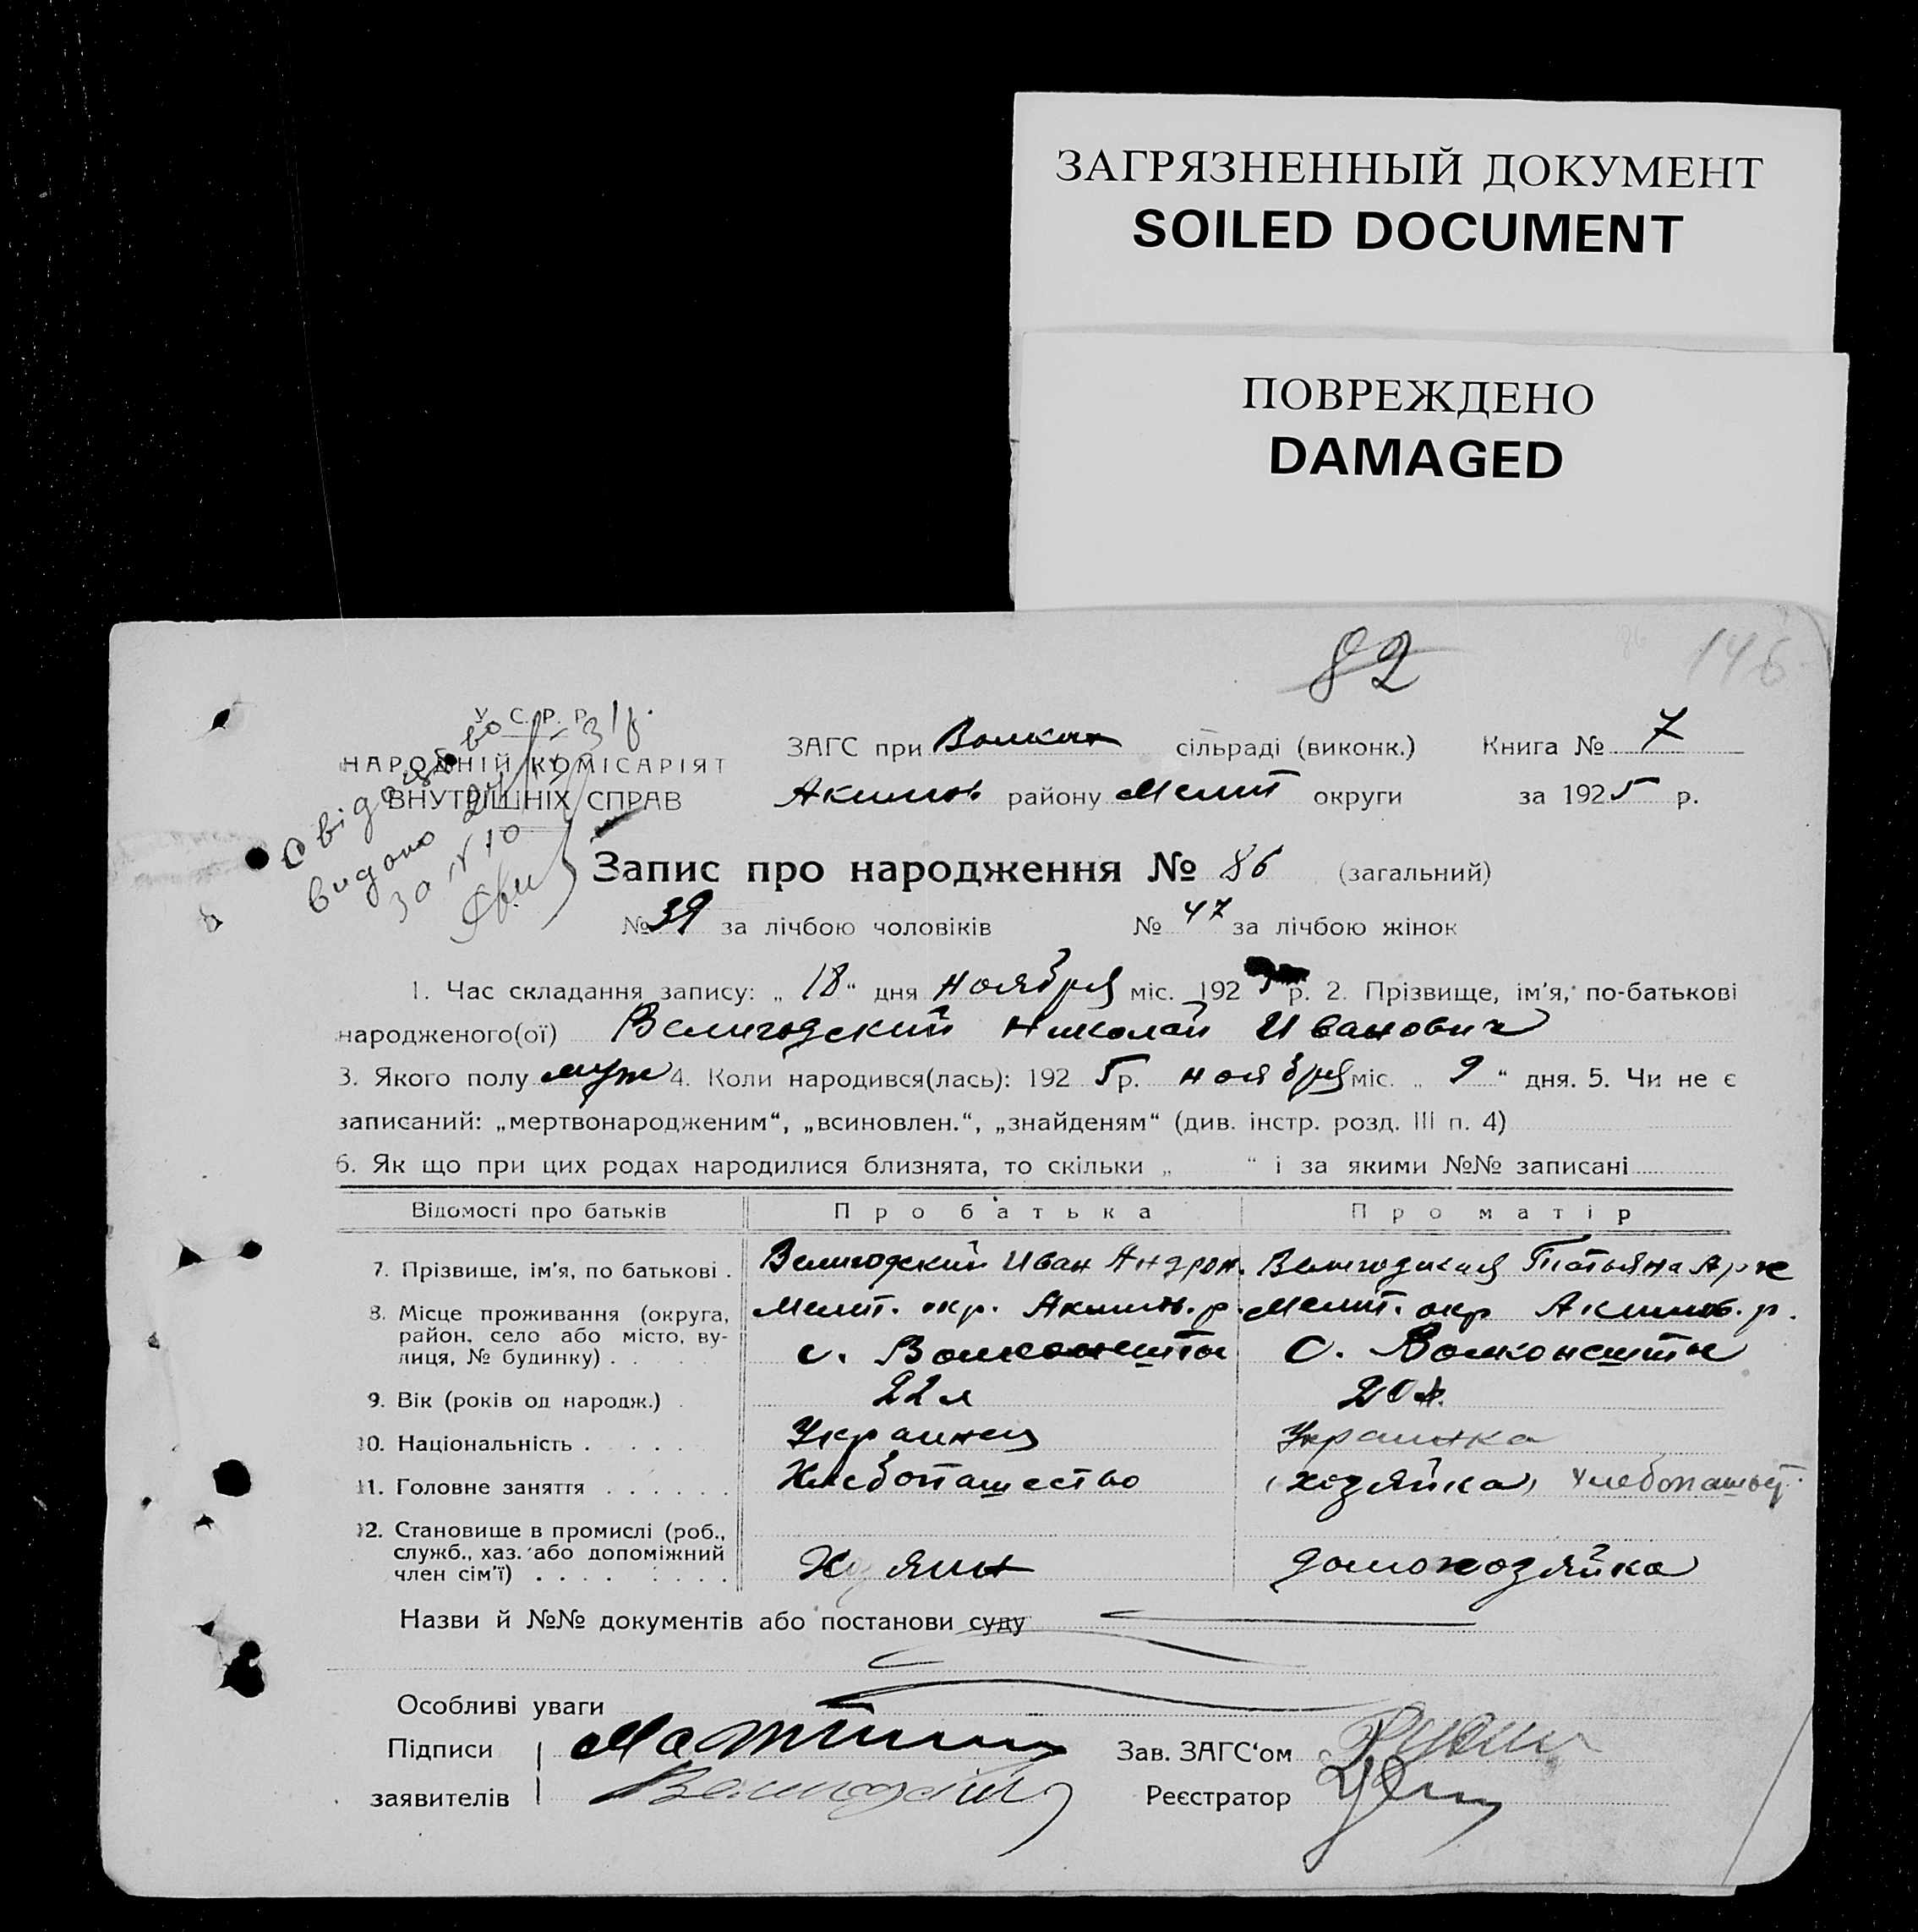 ЗАГРЯЗНЕННЫЙ ДОКУМЕНТ
SOILED DOCUMENT
ПОВРЕЖДЕНО
DAMAGED
82
146
86
У. С. Р. Р.
НАРОДНІЙ КОМІСАРІЯТ
ВНУТРІШНІХ СПРАВ
видано
за № 10
ЗАГС при Волкон сільраді (виконк.) Книга № 7
Акимов району Мелит округи за 1925 р.
Запис про народження № 86 (загальний)
№ 39 за лічбою чоловіків № 47 за лічбою жінок
1. Час складання запису: „ 18 “ дня ноября міс. 1925 р. 2. Прізвище, ім'я, по-батькові
народженого(ої) Велигодский Николай Иванович
3. Якого полу муж 4. Коли народився(лась): 1925 р. ноября міс. „ 9 “ дня. 5. Чи не є
записаний: „мертвонародженим“, „всиновлен.“, „знайденям“ (див. інстр. розд. III п. 4)
6. Як що при цих родах народилися близнята, то скільки „ “ і за якими №№ записані
Відомості про батьків Про батька Про матір
7. Прізвище, ім'я, по батькові . Велигодский Иван Андрон. Велигодская Татьяна
8. Місце проживання (округа, Мелит. окр. Акимов. р. Мелит. окр Акимов. р.
район, село або місто, ву-
лиця, № будинку) . . с. Волконешты С. Волконешты
9. Вік (років од народж.) . 22 л 20 л.
10. Національність . . . . Украинец Украинка
11. Головне заняття . . . . . . Хлебопашество (хозяйка) хлебопашест.
12. Становище в промислі (роб.,
служб., хаз. або допоміжний
член сім'ї) . . . . . . . . Хозяин домохозяйка
Назви й №№ документів або постанови суду
Особливі уваги
Підписи Зав. ЗАГС‘ом
заявителів Велигодский Реєстратор